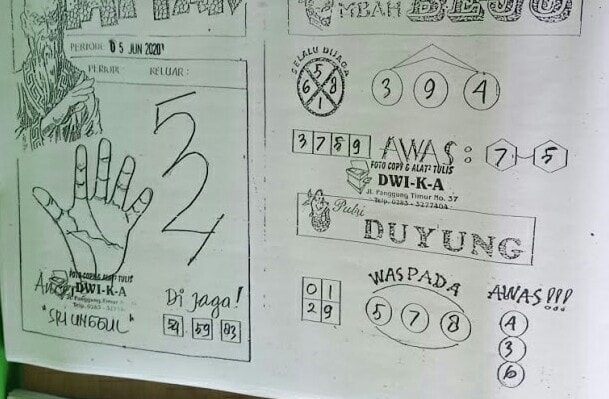 PERIODE 05 JUN 2020
PERIODE: KELUAR:
5
2
4
FOTO COPY & ALAT² TULIS
DWI-K-A
Jl. Panggung Timur
"SRI UNGGUL"
Di jaga!
59 83
MBAH BEJO
SELALU DIJAGA
5
6 8
1
3 9 4
3 7 5 9
AWAS: 7-5
FOTO COPY & ALAT² TULIS
DWI-K-A
Jl. Panggung Timur No. 37
Telp. 0283 - 3277404
Putri
DUYUNG
0 1
2 9
WASPADA
5 7 8
AWAS!!!
4
3
6